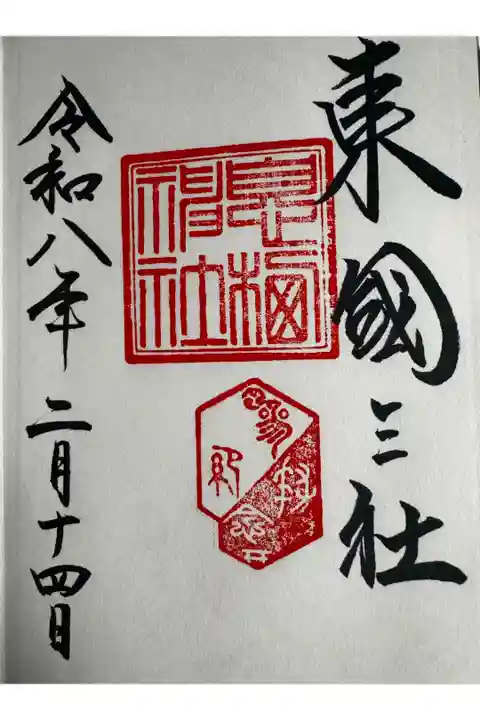 東國三社
息栖
神社
令和八年 二月十四日